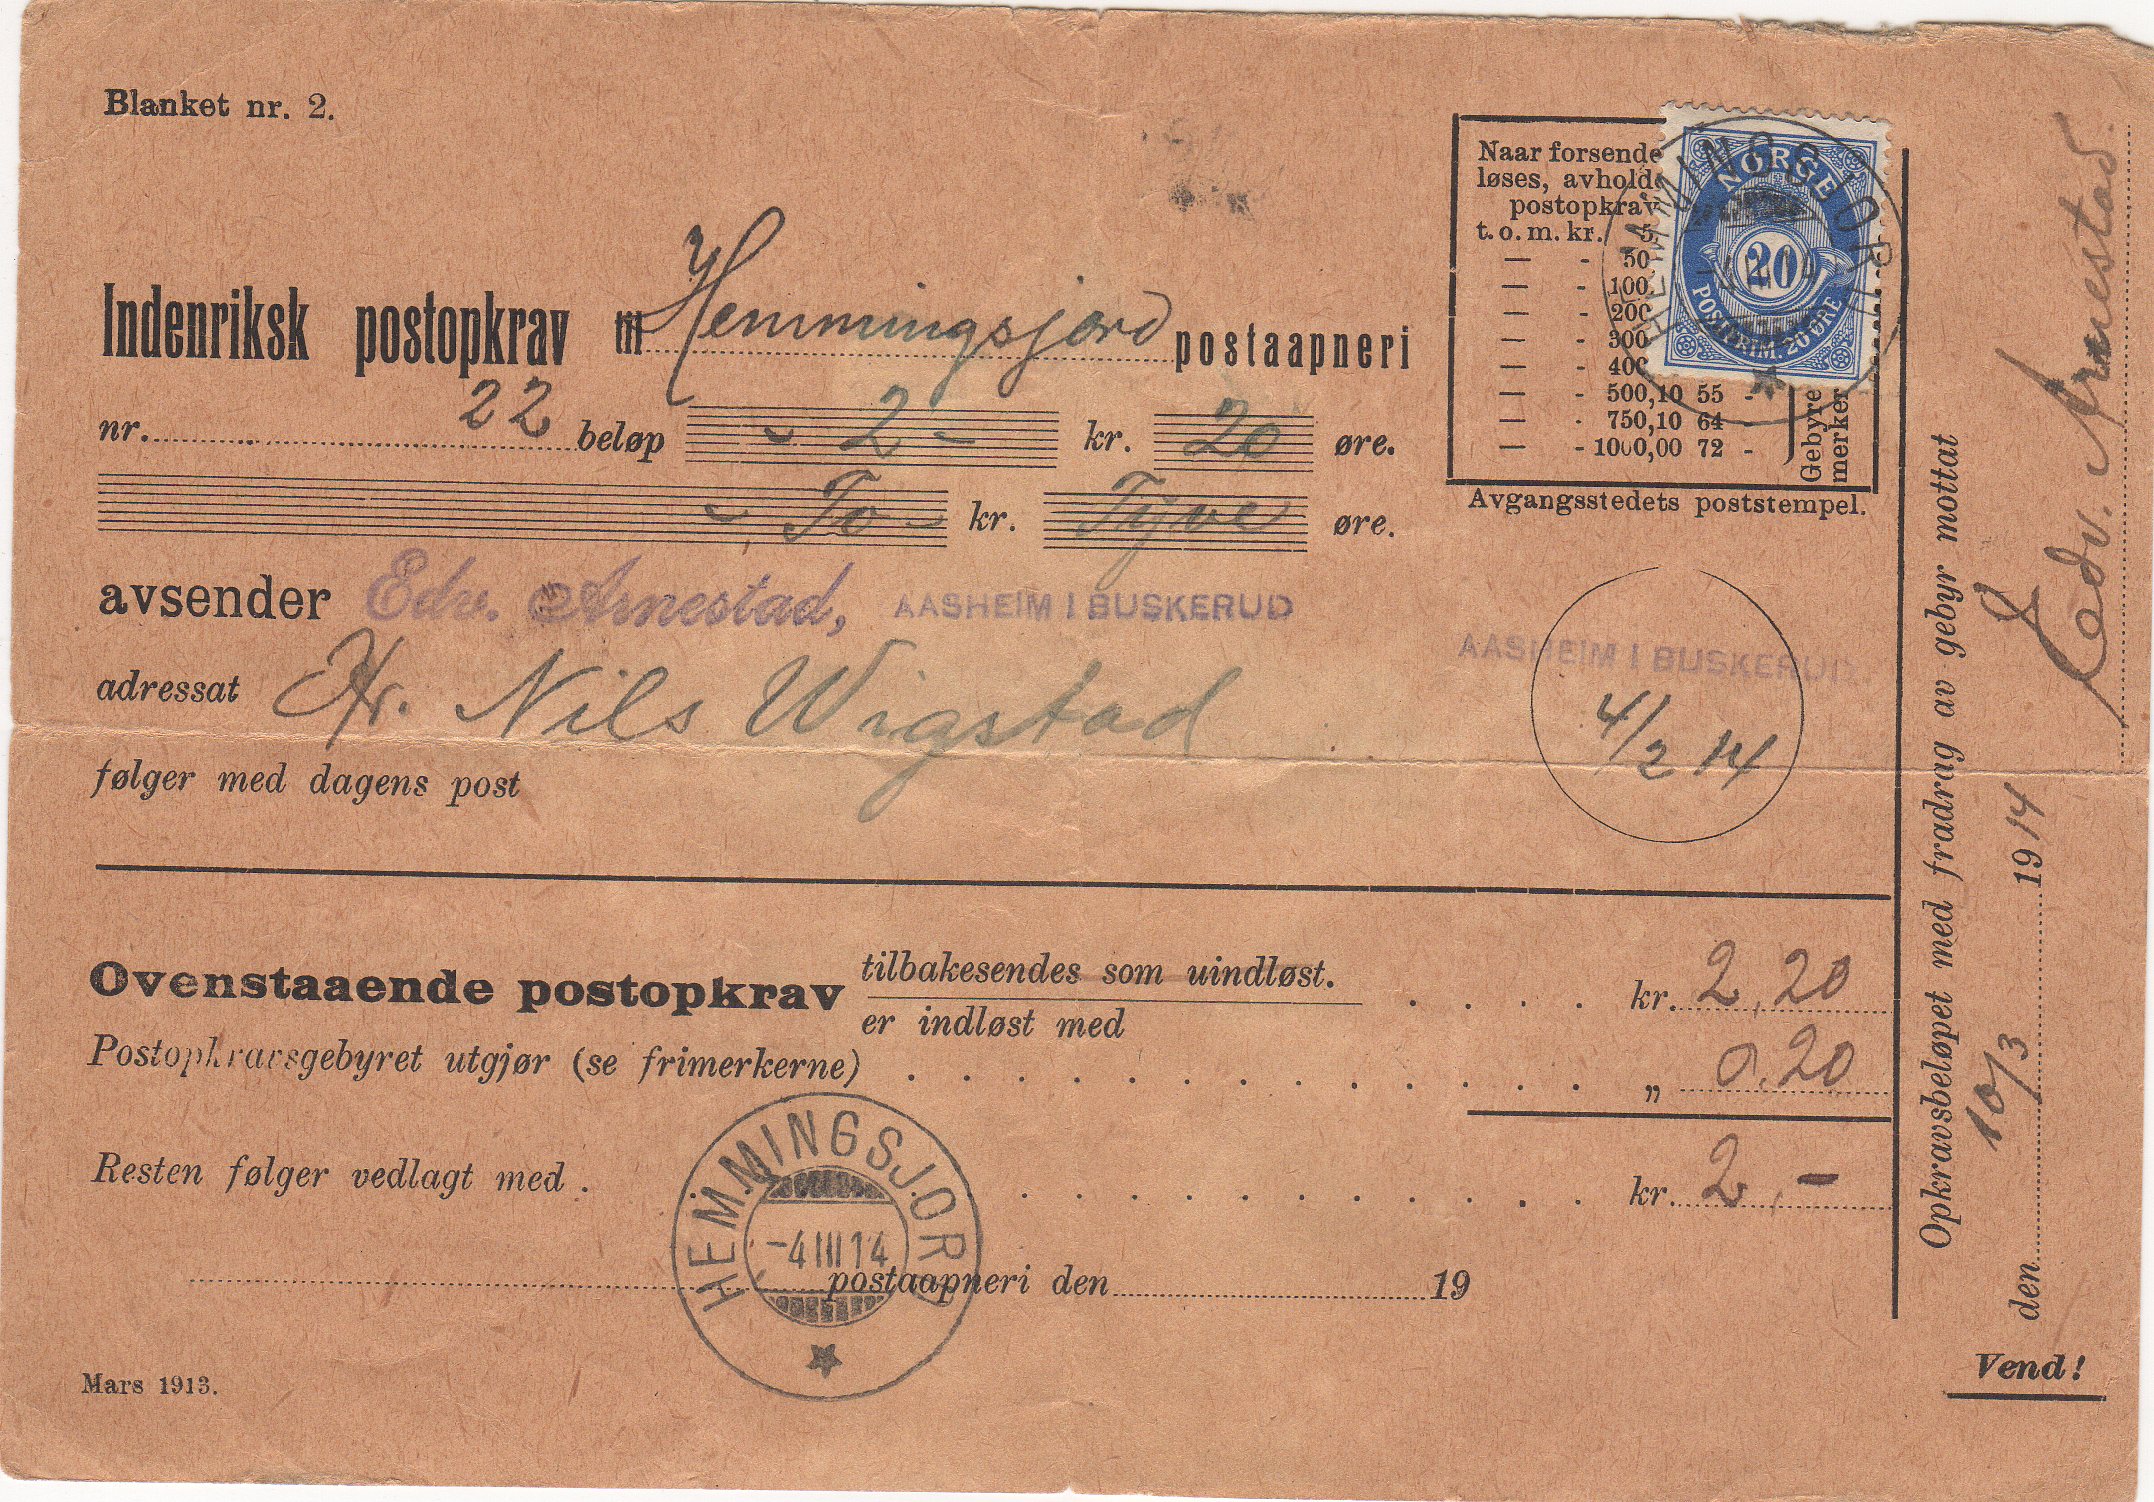 Blanket nr. 2.
Naar forsende
løses, avhold
postopkrav
t. o. m. kr. 5
— - 50
— - 100
— - 200
— - 300
— - 400
— - 500,10 55 -
— - 750,10 64 -
— - 1000,00 72 -
Gebyre
merker
NORGE
20
POSTFRIM. 20 ØRE
HEMMINGSJORD
Avgangsstedets poststempel.
Indenriksk postopkrav til Hemmingsjord postaapneri
nr. 22 beløp - 2 - kr. 20 øre.
- To - kr. Tyve øre.
avsender Edv. Arnestad, AASHEIM I BUSKERUD
AASHEIM I BUSKERUD.
adressat Hr. Nils Wigstad
4/2 14
følger med dagens post
Ovenstaaende postopkrav tilbakesendes som uindløst.
er indløst med . . . . kr. 2,20
Postopkravsgebyret utgjør (se frimerkerne) . . . . . . . . . . . . . „ 0,20
Resten følger vedlagt med . . . . . . . . . . . . kr. 2,-
HEMMINGSJORD
-4 III 14
postaapneri den 19
Mars 1913.
Opkravsbeløpet med fradrag av gebyr mottat
den 10/3 1914
Edv. Arnestad.
Vend!